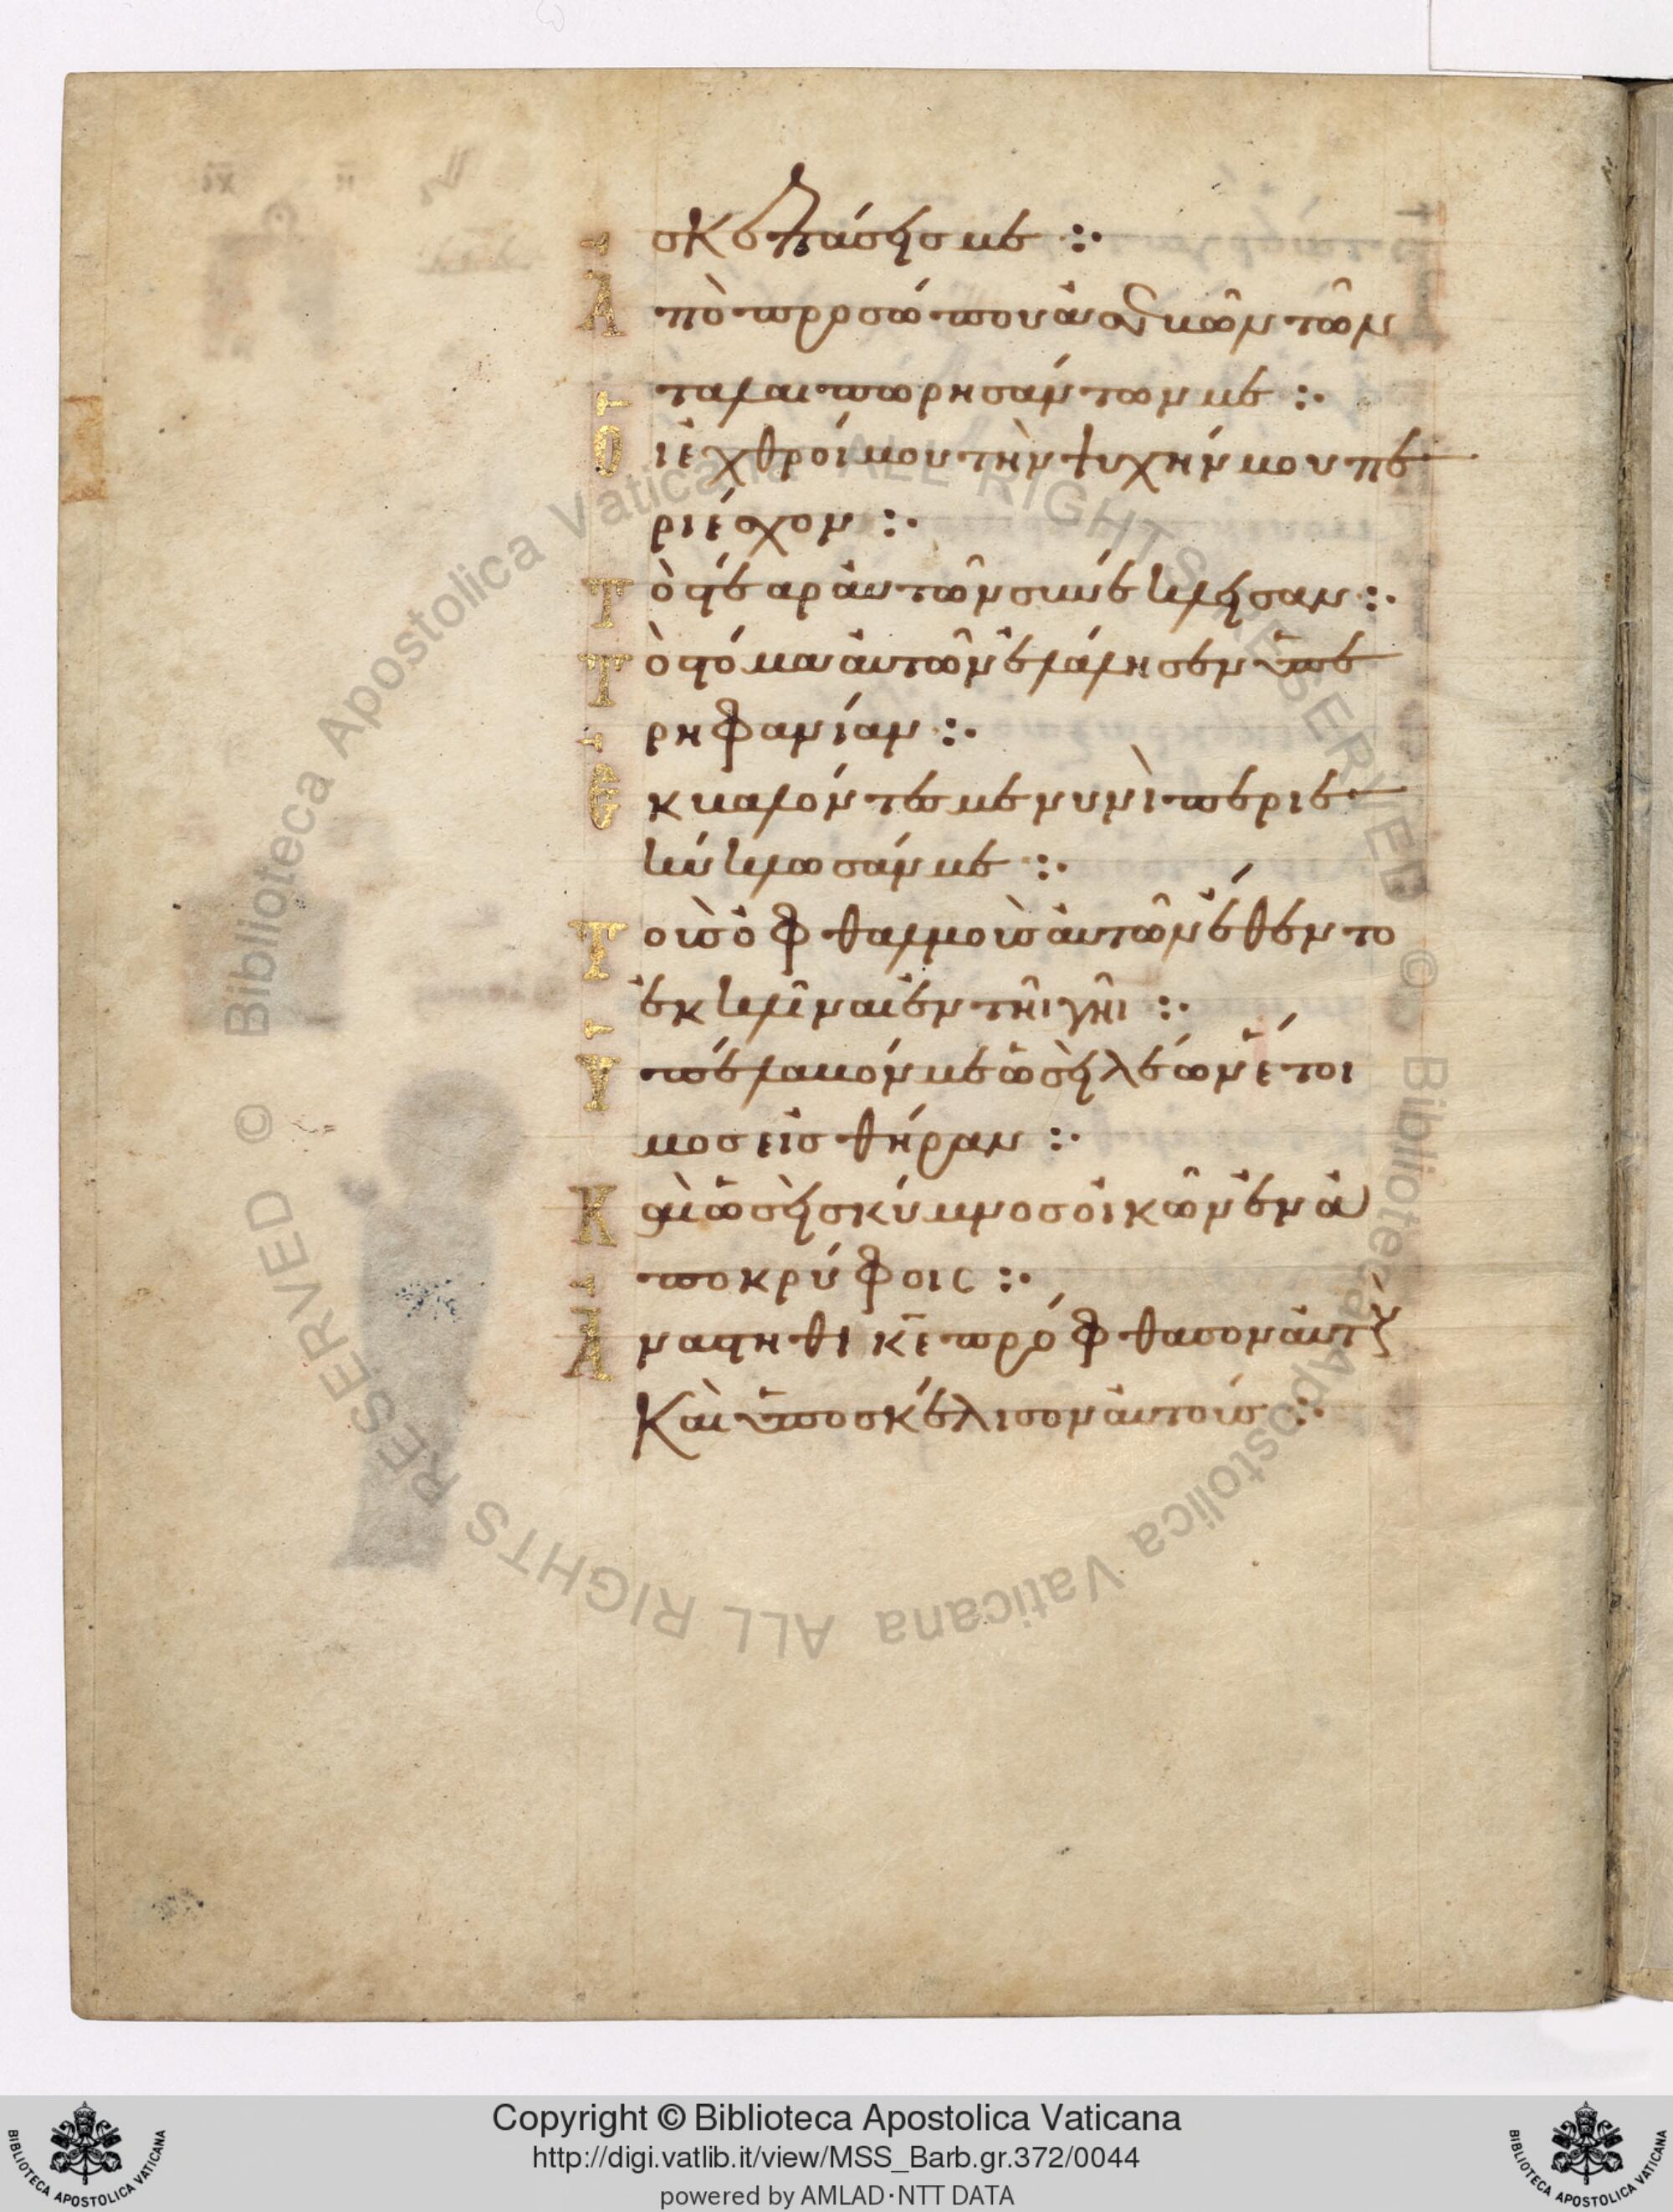 σκεπάσησ με :·
Ἀπὸ προσώπου ἀσεβῶν τῶν
ταλαιπωρησάντων με :·
Οἱ ἐχθροί μου τὴν ψυχήν μου πε
ριέσχον :·
Τὸ στέαρ ἀυτῶν συνέκλεισαν :·
Τὸ στόμα ἀυτῶν ἐλάλησεν ὑπε
ρηφανίαν :·
Ἐκβαλόντεσ με νυνὶ περιε
κύκλωσάν με :·
Τοὺσ ὀφθαλμοὺσ ἀυτῶν ἔθεντο
ἐκκλῖναι ἐν τῆι γῆι :·
Ὑπέλαβόν με ὡσεὶ λέων ἕτοι
μοσ εἰσ θήραν :·
Καὶ ὡσεὶ σκύμνοσ οἰκῶν ἐν ἀ
ποκρύφοις :·
Ἀναστηθι κε πρόφθασον ἀυτοὺσ
Καὶ ὑποσκέλισον ἀυτούσ :·
Copyright © Biblioteca Apostolica Vaticana
http://digi.vatlib.it/view/MSS_Barb.gr.372/0044
powered by AMLAD·NTT DATA
BIBLIOTECA APOSTOLICA VATICANA
BIBLIOTECA APOSTOLICA VATICANA
© Biblioteca Apostolica Vaticana ALL RIGHTS RESERVED © Biblioteca Apostolica Vaticana ALL RIGHTS RESERVED